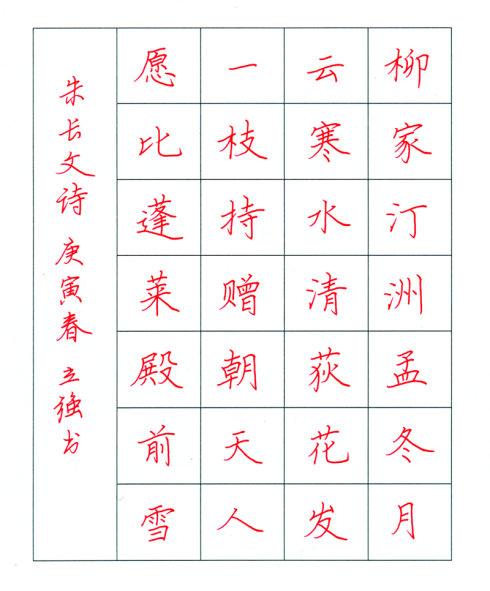 柳家汀洲孟冬月
云寒水清荻花发
一枝持赠朝天人
愿比蓬莱殿前雪
朱长文诗 庚寅春 立强书